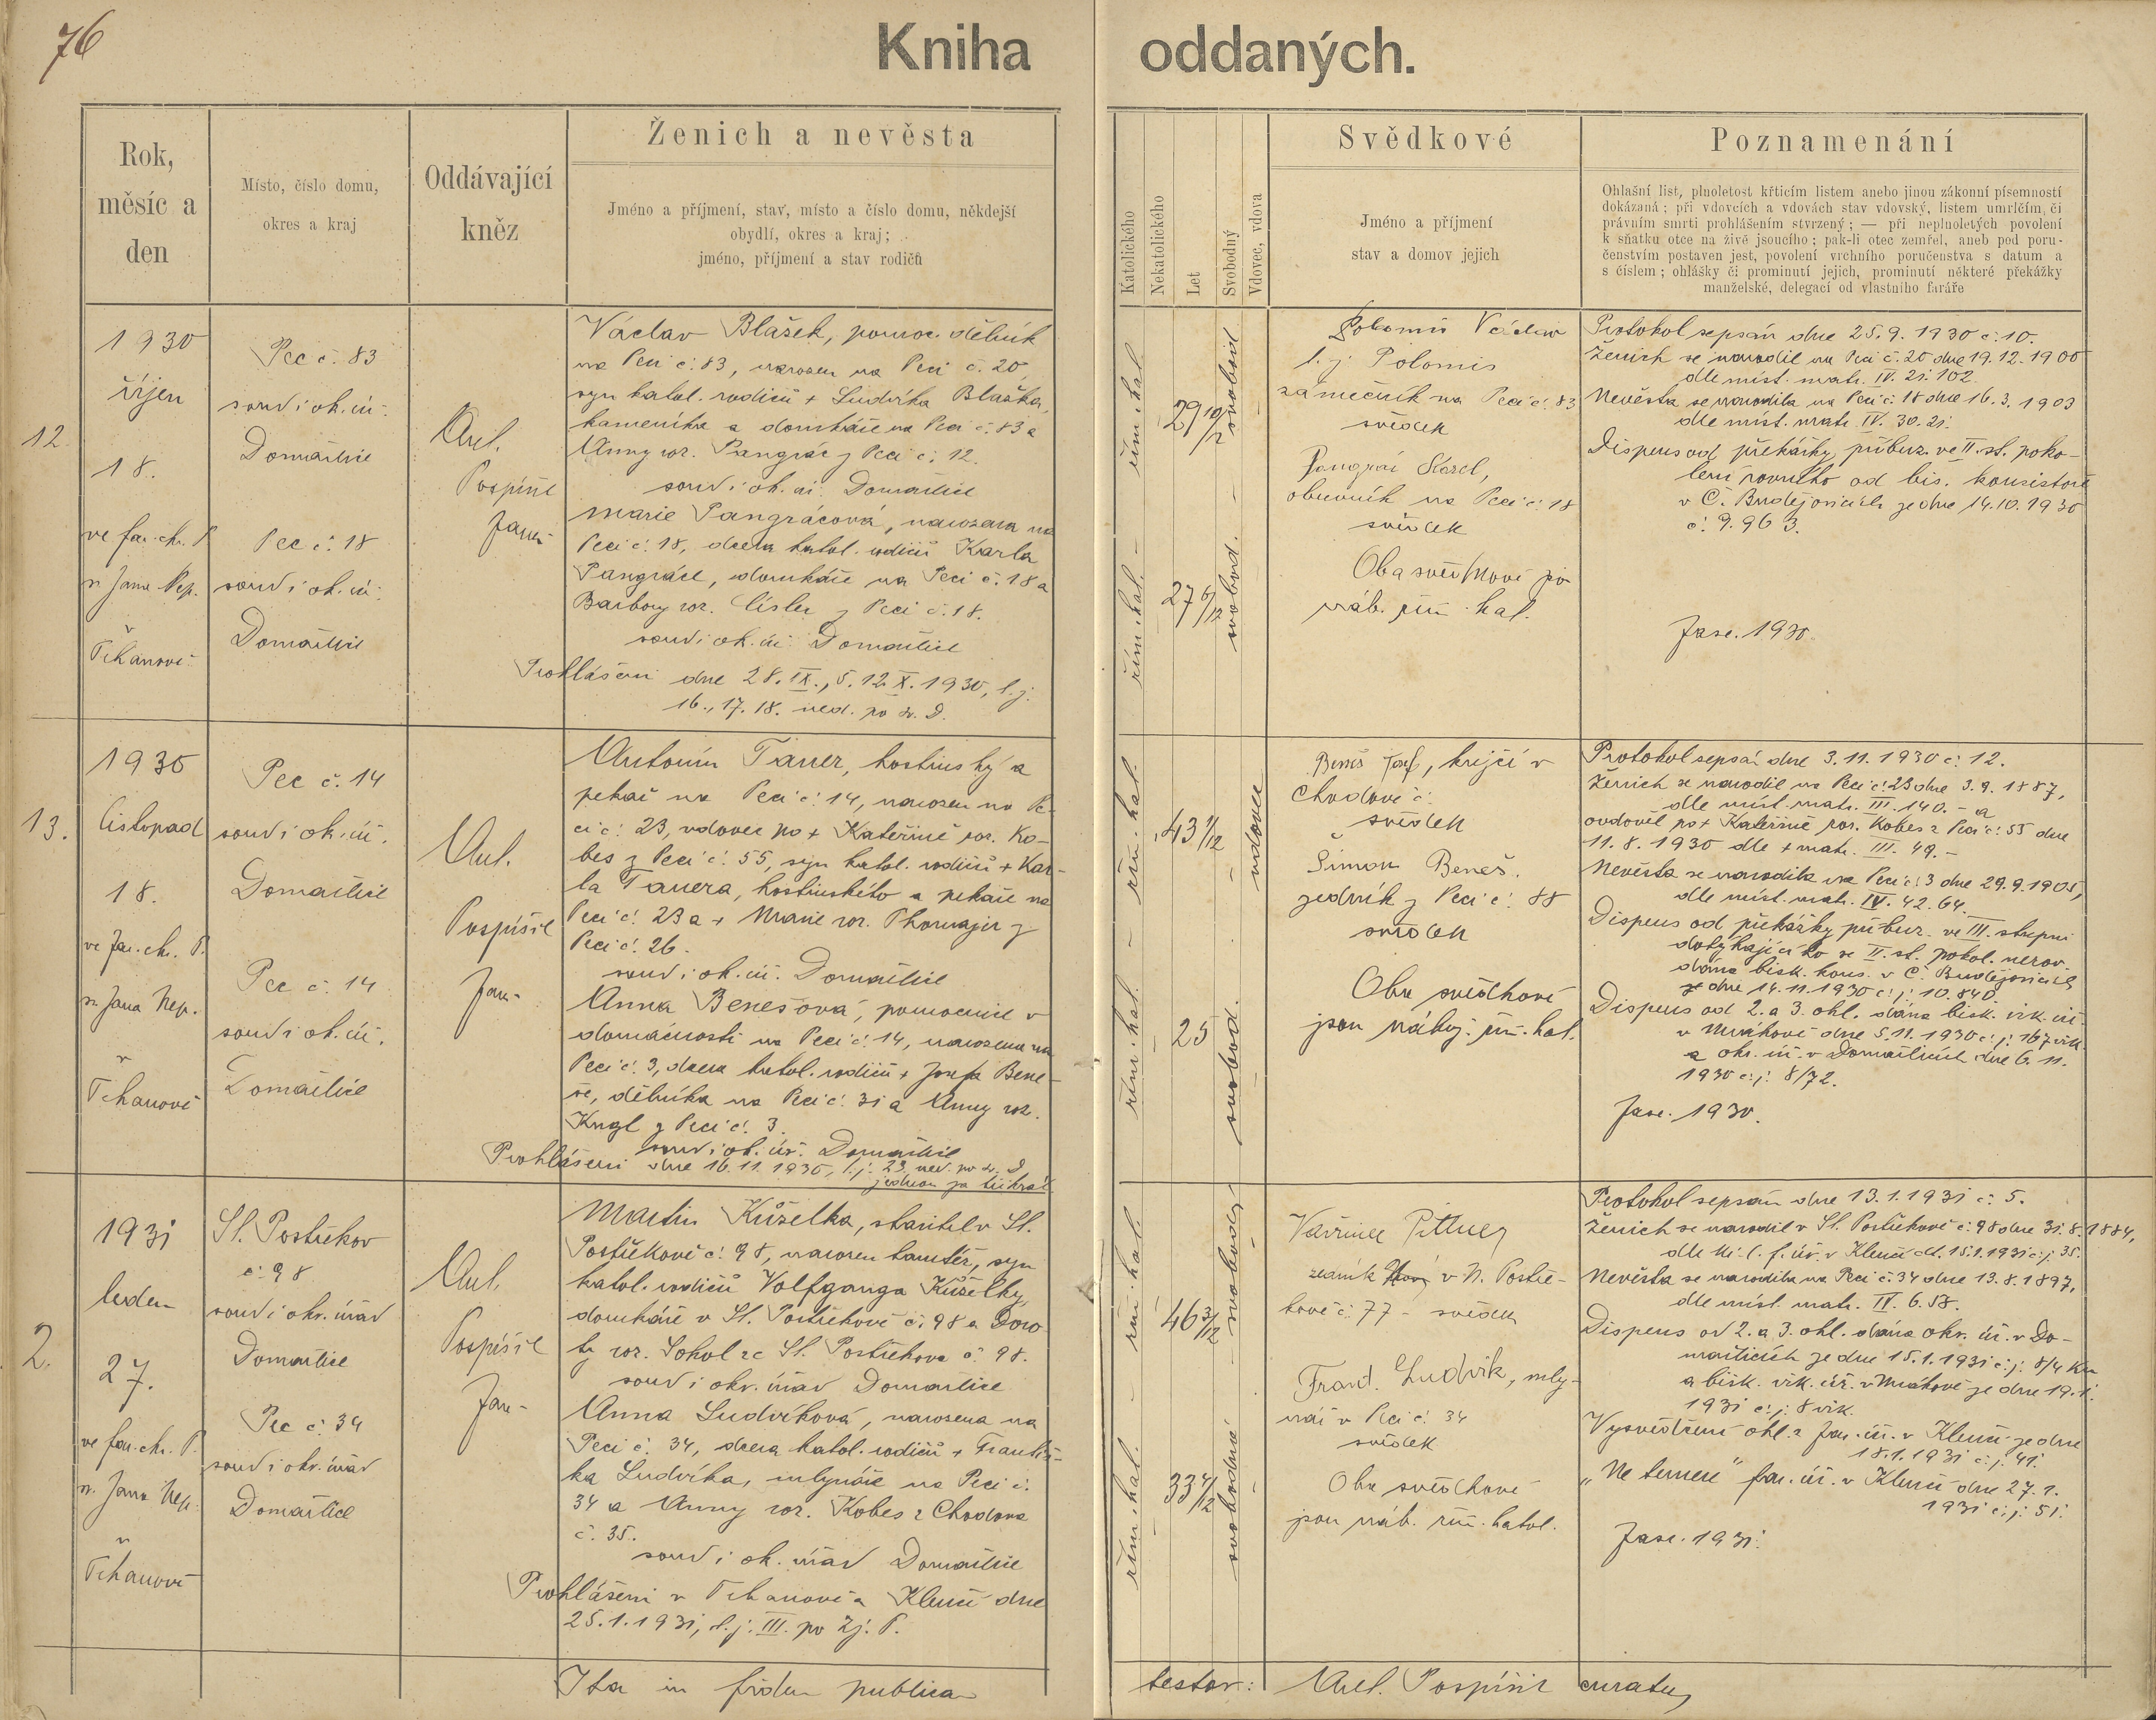 76
Kniha oddaných.
Rok,
měsíc a
den
Místo, číslo domu,
okres a kraj
Oddávající
kněz
Ženich a nevěsta
Jméno a příjmení, stav, místo a číslo domu, někdejší
obydlí, okres a kraj;
jméno, příjmení a stav rodičů
Katolického
Nekatolického
Let
Svobodný
Vdovec, vdova
Svědkové
Jméno a příjmení
stav a domov jejich
Poznamenání
Ohlašní list, plnoletost křticím listem anebo jinou zákonní písemností
dokázaná; při vdovcích a vdovách stav vdovský, listem umrlčím, či
právním smrti prohlášením stvrzený; — při neplnoletých povolení
k sňatku otce na živě jsoucího; pak-li otec zemřel, aneb pod poru-
čenstvím postaven jest, povolení vrchního poručenstva s datum a
s číslem; ohlášky či prominutí jejich, prominutí některé překážky
manželské, delegací od vlastního faráře
12.
1930
říjen
18.
ve far. chr. P.
sv. Jana Nep.
v
Tchanově
Pec č. 83
soud i ok. úř.
Domažlice
Pec č. 18
soud i ok. úř.
Domažlice
Ant.
Pospíšil
farář
Václav Blažek, pomoc. dělník
na Peci č. 83, narozen na Peci č. 20,
syn katol. rodičů + Ludvíka Blažka,
kameníka a domkáře na Peci č. 83 a
Anny roz. Pangrác z Peci č. 12.
soud i ok. úř. Domažlice
Marie Pangrácová, narozena na
Peci č. 18, dcera katol. rodičů Karla
Pangráce, domkáře na Peci č. 18 a
Barbory roz. Císler z Peci č. 18.
soud i ok. úř. Domažlice
Prohlášeni dne 28. IX., 5. 12. X. 1930, t. j.
16., 17. 18. ned. po sv. D.
řím. kat. –
29 10/12
svobod.
řím. kat. –
27 6/12
svobod.
Václav
t. j. Polomis
zámečník na Peci č. 83
svědek
Pangrác Karel,
obuvník na Peci č. 18
svědek
Oba svědkové jsou
náb. řím. kat.
Protokol sepsán dne 25. 9. 1930 č. 10.
Ženich se narodil na Peci č. 20 dne 19. 12. 1900
dle míst. matr. IV. 21. 102.
Nevěsta se narodila na Peci č. 18 dne 16. 3. 1903
dle míst. matr. IV. 30. 21.
Dispens od překážky příbuz. ve II. st. poko-
lení rovného od bis. konsistoře
v Č. Budějovicích ze dne 14. 10. 1930
č. 9.963.
Fasc. 1930.
13.
1930
listopad
18.
ve far. chr. P.
sv. Jana Nep.
v
Tchanově
Pec č. 14
soud i ok. úř.
Domažlice
Pec č. 14
soud i ok. úř.
Domažlice
Ant.
Pospíšil
farář
Antonín Tauer, hostinský a
pekař na Peci č. 14, narozen na Pe-
ci č. 23, vdovec po + Kateřině roz. Ko-
bes z Peci č. 55, syn katol. rodičů + Kar-
la Tauera, hostinského a pekaře na
Peci č. 23 a + Marie roz. Thomajer z
Peci č. 26.
soud i ok. úř. Domažlice
Anna Benešová, pomocnice v
domácnosti na Peci č. 14, narozena na
Peci č. 3, dcera katol. rodičů + Josefa Bene-
še, dělníka na Peci č. 31 a Anny roz.
Kugl z Peci č. 3.
soud i ok. úř. Domažlice
Prohlášeni dne 16. 11. 1930, t. j. 23. ned. po sv. D.
jednou za třikrát
řím. kat. –
43 1/12
– vdovec
řím. kat. –
25
svobod.
Beneš Josef, krejčí v
Chodově č.
svědek
Šimon Beneš,
zedník z Peci č. 88
svědek
Oba svědkové
jsou nábož. řím. kat.
Protokol sepsán dne 3. 11. 1930 č. 12.
Ženich se narodil na Peci č. 23 dne 3. 9. 1887,
dle míst. matr. III. 140. – a
ovdověl po + Kateřině roz. Kobes z Peci č. 55 dne
11. 8. 1930 dle + matr. III. 49. –
Nevěsta se narodila na Peci č. 3 dne 29. 9. 1905,
dle míst. matr. IV. 42. 64.
Dispens od překážky příbuz. ve III. stupni
dotýkajícího se II. st. pokol. nerov.
dána bisk. kons. v Č. Budějovicích
ze dne 14. 11. 1930 č. j. 10.840
Dispens od 2. a 3. ohl. dána bisk. vik. úř.
v Mrákově dne 5. 11. 1930 č. j. 167 vik.
a okr. úř. v Domažlicích dne 6. 11.
1930 č. j. 8/72.
Fasc. 1930.
2.
1931
leden
27.
ve far. chr. P.
sv. Jana Nep.
v
Tchanově
St. Postřekov
č. 98
soud i okr. úřad
Domažlice
Pec č. 34
soud i okr. úřad
Domažlice
Ant.
Pospíšil
farář
Martin Kůželka, stavitel v St.
Postřekově č. 98, narozen tamtéž, syn
katol. rodičů Volfganga Kůželky,
domkáře v St. Postřekově č. 98 a Doro-
ty roz. Sokol ze St. Postřekova č. 98.
soud i okr. úřad Domažlice
Anna Ludvíková, narozena na
Peci č. 34, dcera katol. rodičů + Františ-
ka Ludvíka, mlynáře na Peci č.
34 a Anny roz. Kobes z Chodova
č. 35.
soud i ok. úřad Domažlice
Prohlášeni v Tchanově a Klenčí dne
25. 1. 1931, t. j. III. po Zj. P.
řím. kat. –
46 3/12
– svobodný
řím. kat. –
33 4/12
svobodná
Vavřinec Pittner
zedník v N. Postře-
kově č. 77 – svědek
Frant. Ludvík, mly-
nář v Peci č. 34
svědek
Oba svědkové
jsou náb. řím. katol.
Protokol sepsán dne 13. 1. 1931 č. 5.
Ženich se narodil v St. Postřekově č. 98 dne 31. 8. 1884,
dle kř. l. f. úř. v Klenčí dt. 15. 1. 1931 č. j. 35.
Nevěsta se narodila na Peci č. 34 dne 13. 8. 1897,
dle míst. matr. IV. 6. 58.
Dispens od 2. a 3. ohl. dána okr. úř. v Do-
mažlicích ze dne 15. 1. 1931 č. j. 8/4
a bisk. vik. úř. v Mrákově ze dne 19. 1.
1931 č. j. 8 vik.
Vysvědčení ohl. z far. úř. v Klenčí ze dne
18. 1. 1931 č. j. 41.
„Ne temere" far. úř. v Klenčí dne 27. 1.
1931 č. j. 51.
Fasc. 1931.
Ita in fidem publicam testor: Ant. Pospíšil curatus